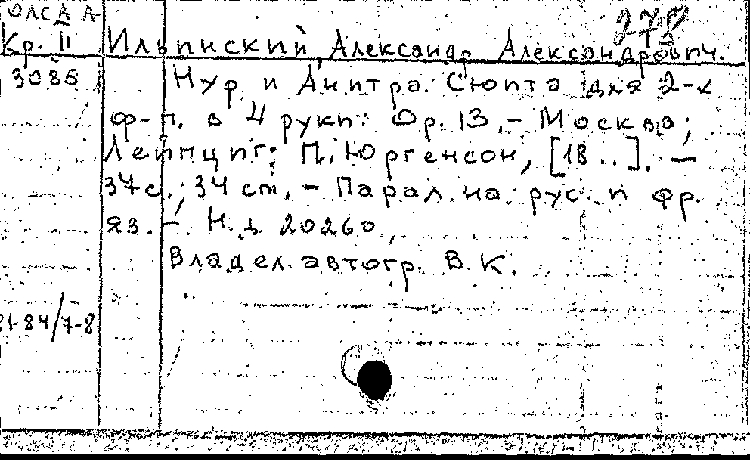 ОЛСАА
Кр. II Ильинский, Александр Александрович.
3085 Нур и Анитра. Сюита для 2-х
ф-п. в 4 руки: Op. 13. - Москва;
Лейпциг: П. Юргенсон, [18..]. -
37 с.; 34 cm. - Парал. на рус. и фр.
яз. - Н.д. 20260.
Владел. автогр. В.К.
81-84/7-8